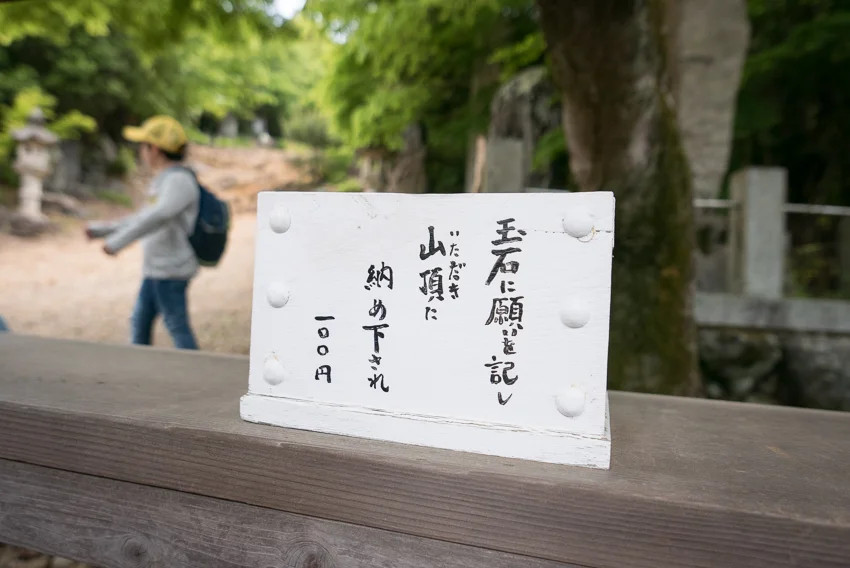 玉石に願いを記し
いただき
山頂に
納め下され
一〇〇円